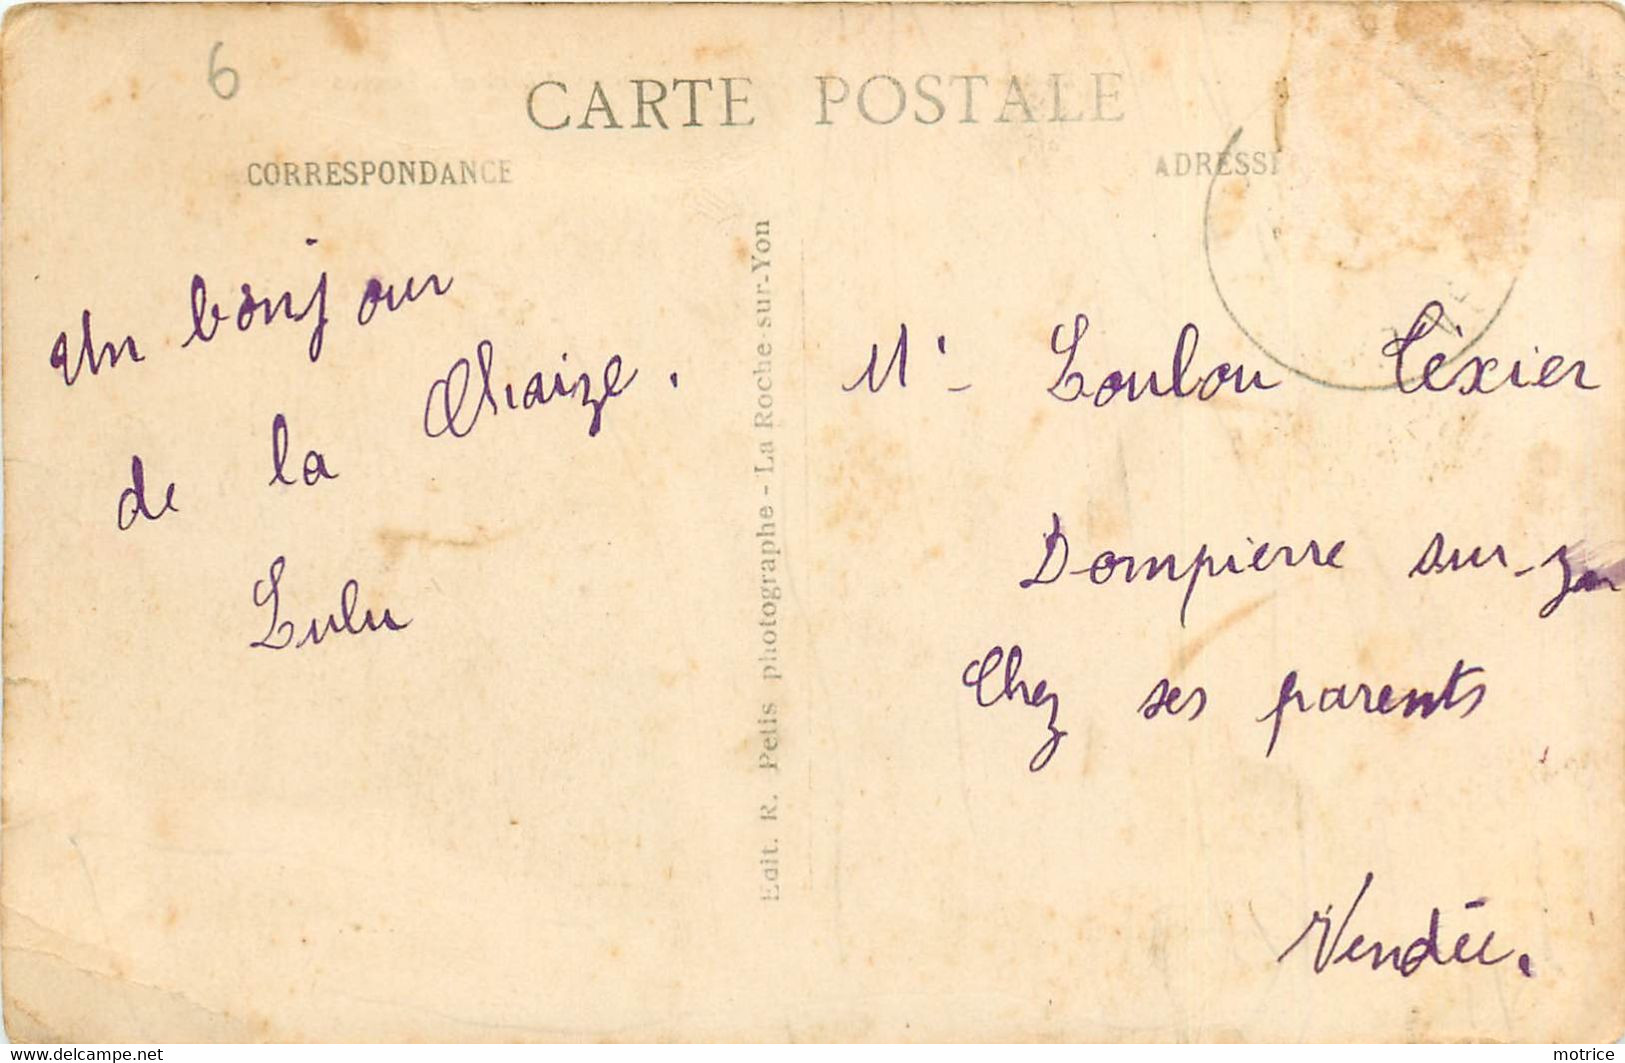 6
CARTE POSTALE
CORRESPONDANCE
ADRESSE
Un bonjour
de la Chaize.
Lulu
Edit. R. Petis photographe - La Roche-sur-Yon
Mr Loulou Téxier
Dompierre sur-Yon
Chez ses parents
Vendée.
https://www.delcampe.net
motrice